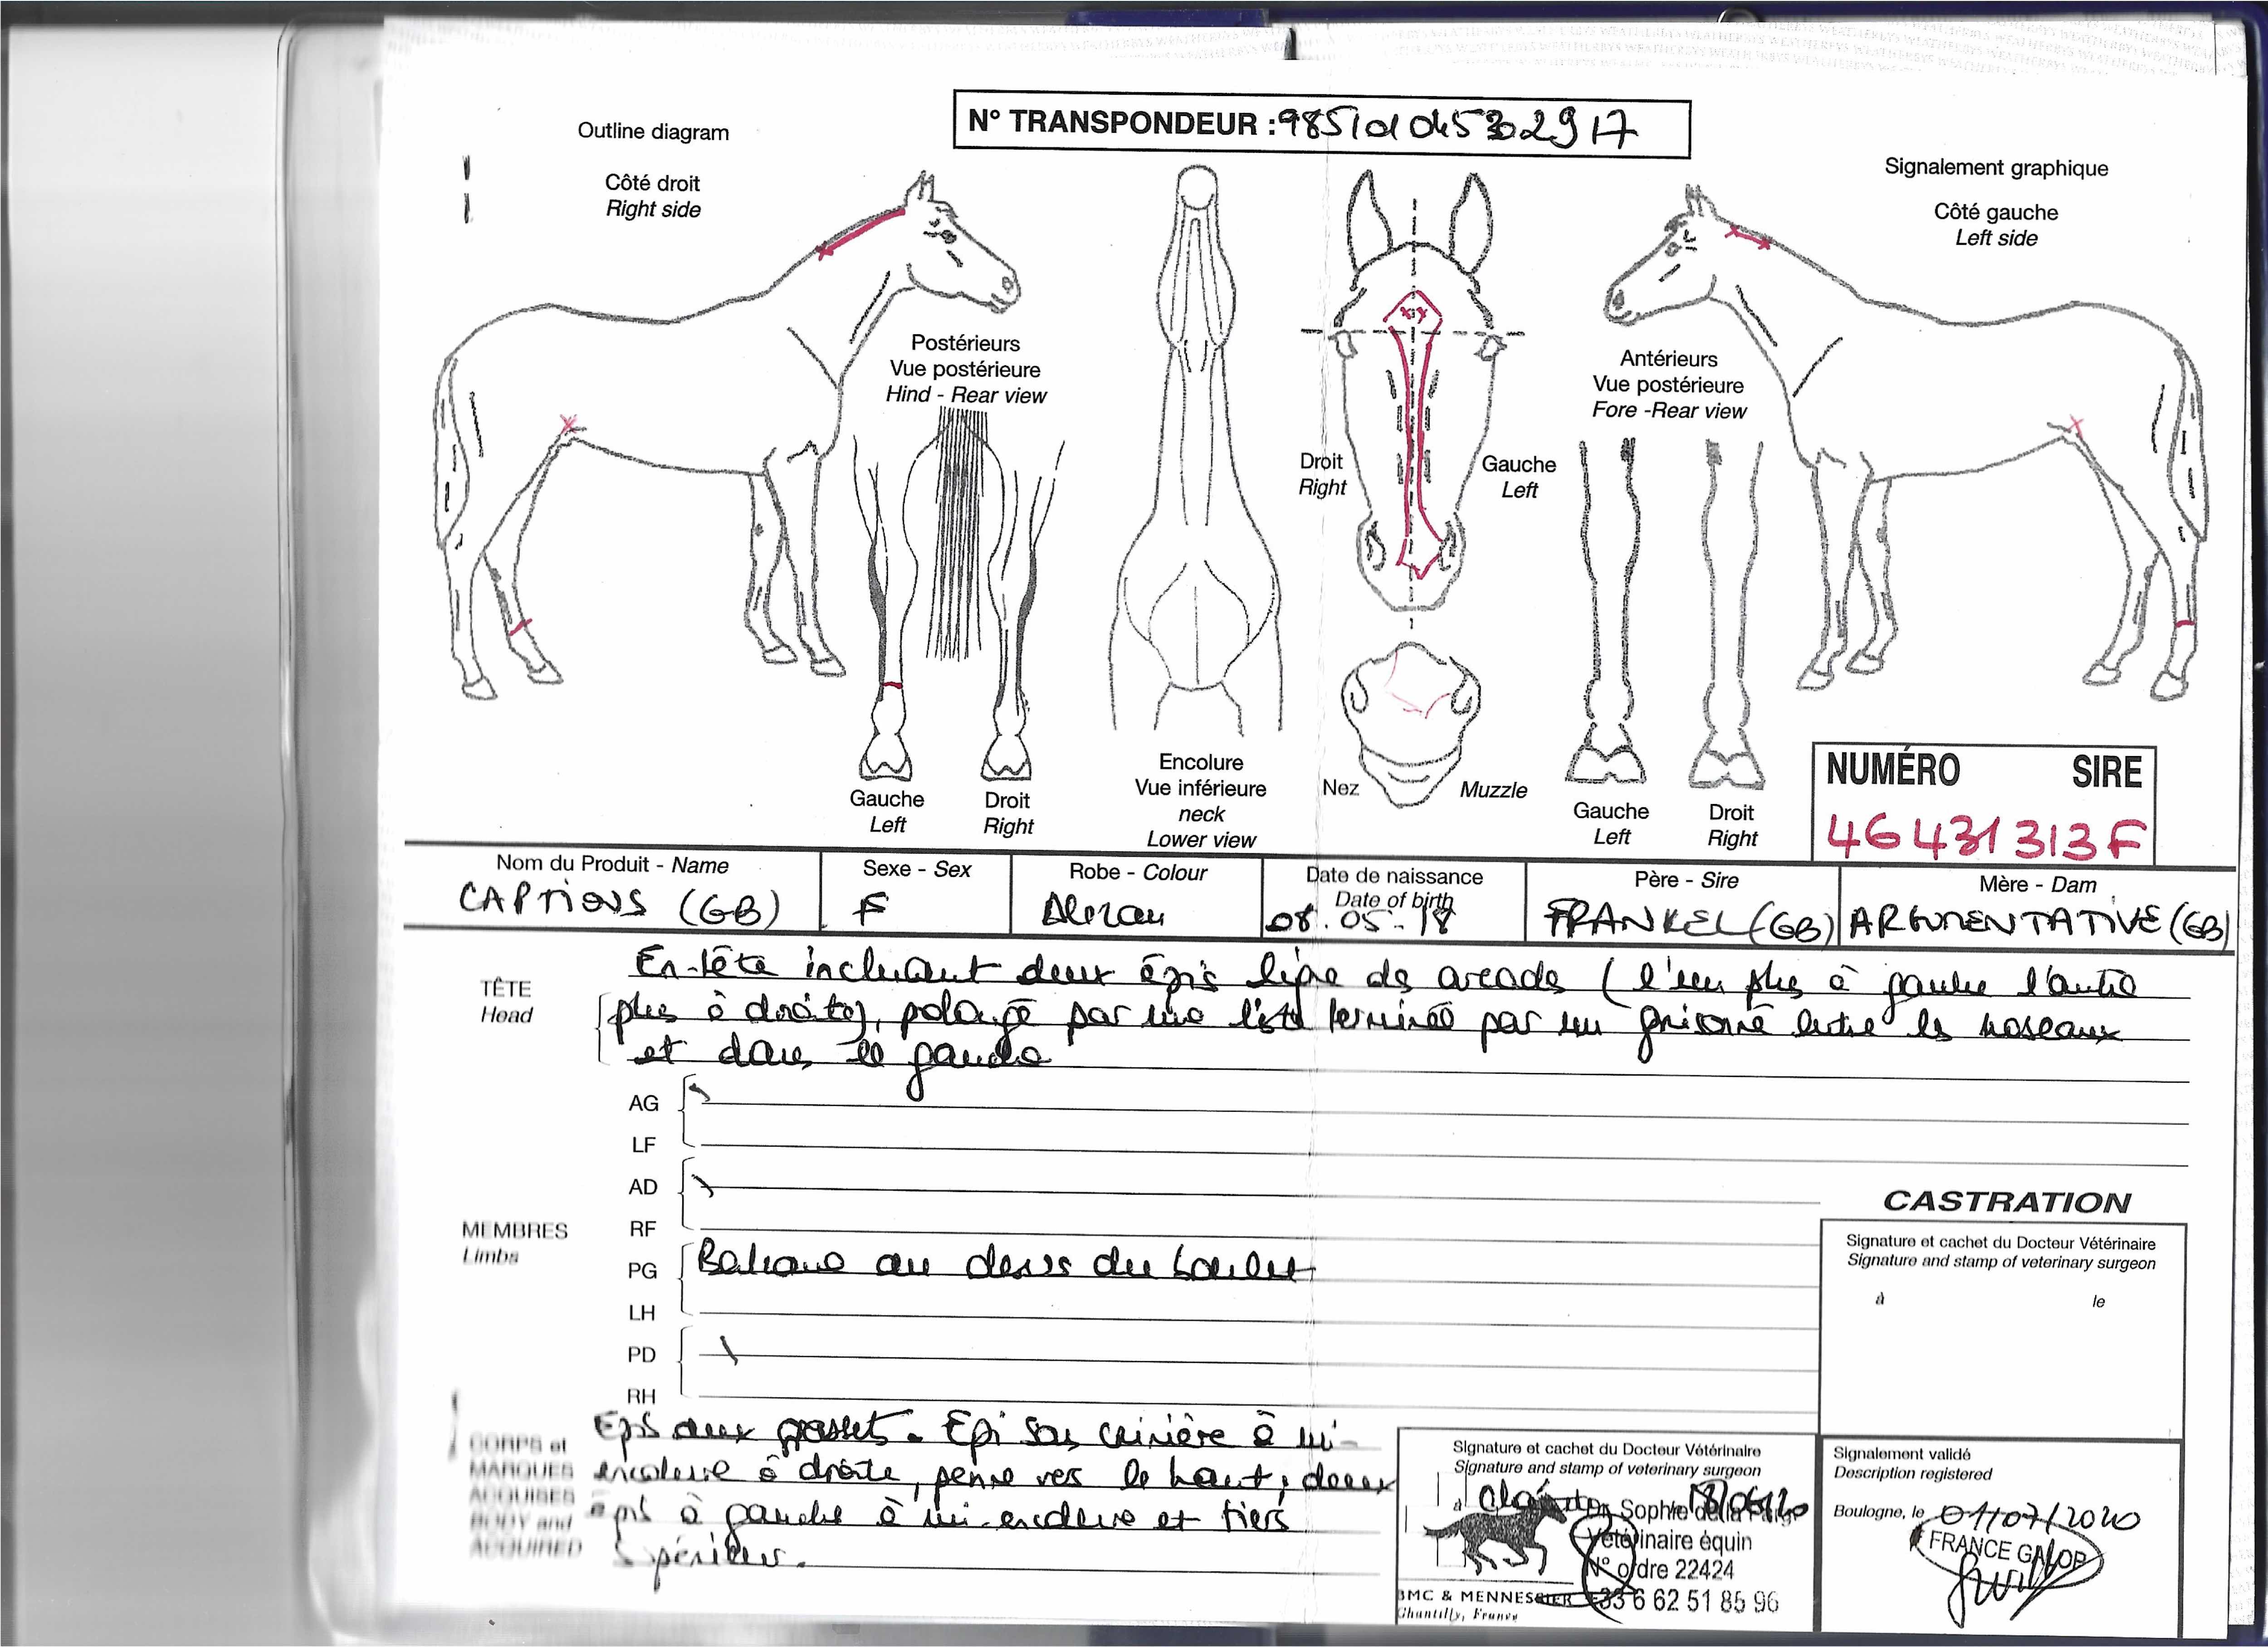 N° TRANSPONDEUR : 985101045302917
Outline diagram
Côté droit
Right side
Signalement graphique
Côté gauche
Left side
Postérieurs
Vue postérieure
Hind - Rear view
Antérieurs
Vue postérieure
Fore -Rear view
Droit
Right
Gauche
Left
Gauche
Left
Droit
Right
Encolure
Vue inférieure
neck
Lower view
Nez
Muzzle
Gauche
Left
Droit
Right
NUMÉRO SIRE
46431313F
Nom du Produit - Name
CAPTIONS (GB)
Sexe - Sex
F
Robe - Colour
Alezan
Date de naissance
Date of birth
08.05.18
Père - Sire
FRANKEL (GB)
Mère - Dam
ARGUMENTATIVE (GB)
TÊTE
Head
En-tête incluant deux épis ligne des arcades (l'un plus à gauche l'autre
plus à droite), prolongé par une liste terminée par un grisonné entre les naseaux
et dans le gauche
AG
LF
AD
RF
MEMBRES
Limbs
PG
Balzane au dessus du boulet
LH
PD
RH
CORPS et
MARQUES
ACQUISES
BODY and
ACQUIRED
Epis aux grassets. Epi sous crinière à mi-
encolure à droite, penne vers le haut, deux
épis à gauche à mi-encolure et tiers
supérieur.
CASTRATION
Signature et cachet du Docteur Vétérinaire
Signature and stamp of veterinary surgeon
à le
Signature et cachet du Docteur Vétérinaire
Signature and stamp of veterinary surgeon
à 18/06/20
Sophie de la
Vétérinaire équin
N° ordre 22424
+33 6 62 51 85 96
BMC & MENNESSIER
Chantilly, France
Signalement validé
Description registered
Boulogne, le 01/07/2020
FRANCE GALOP